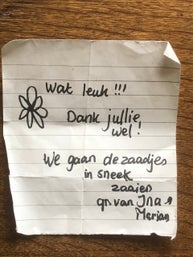 Wat leuk!!!
Dank jullie
wel!
We gaan de zaadjes
in sneek
zaaien
gr van Ina &
Marian